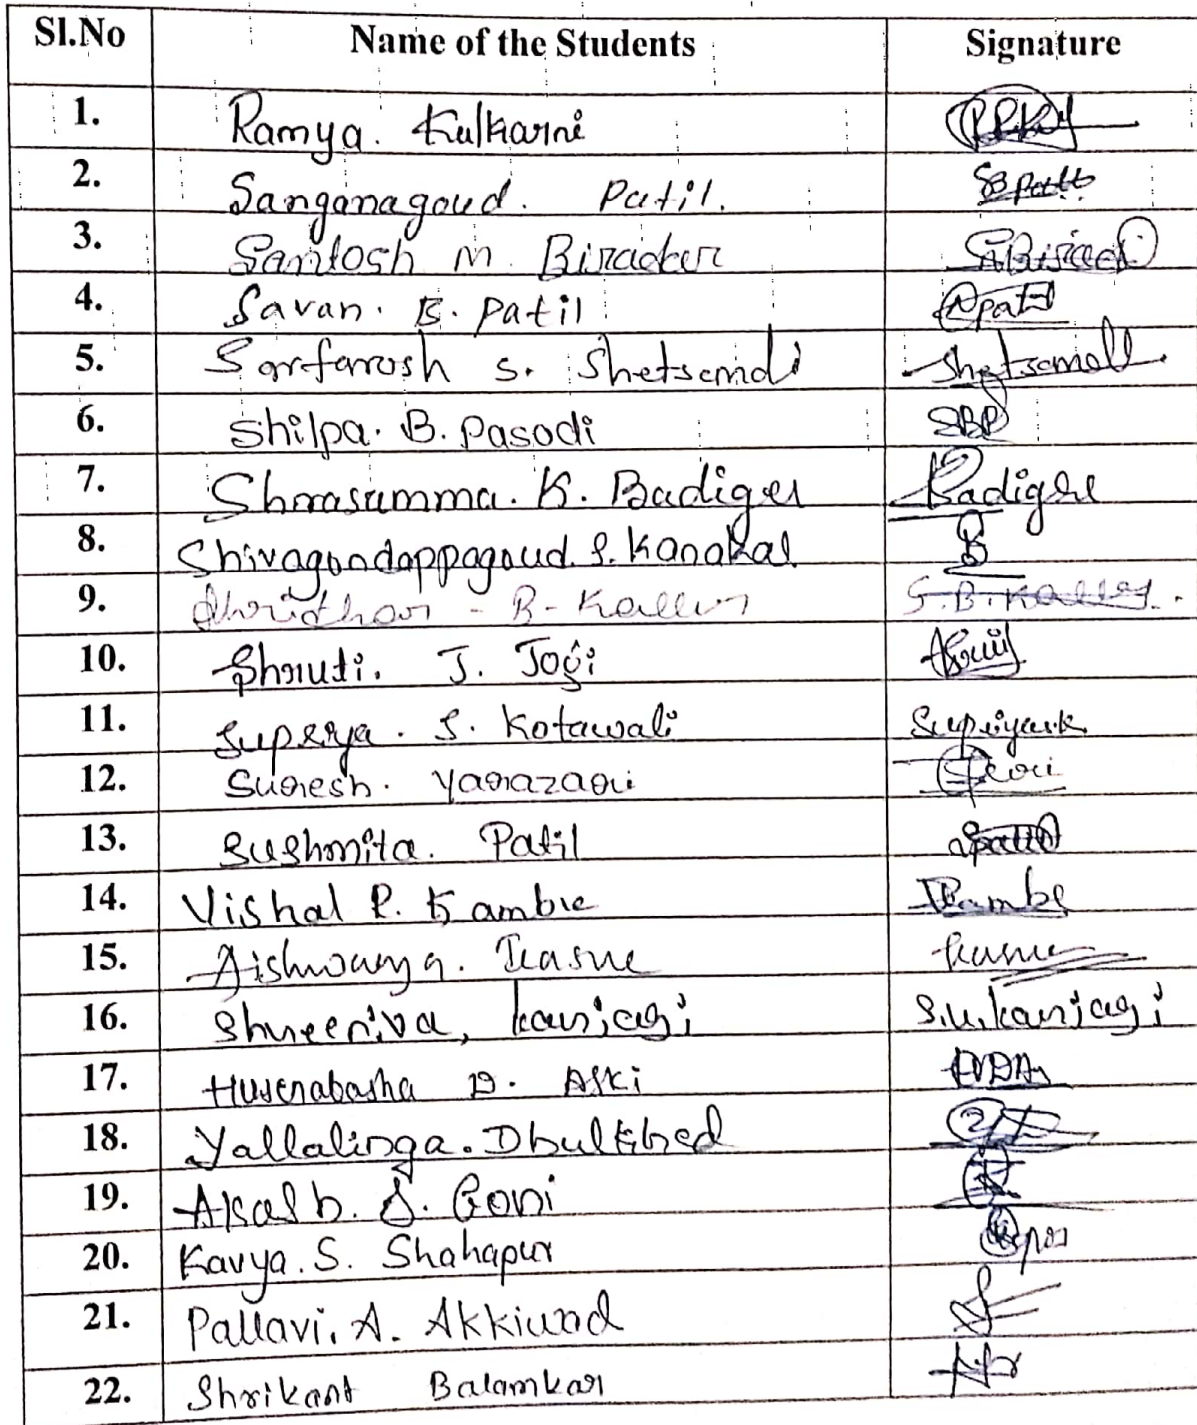 Sl.No Name of the Students Signature
1. Ramya. Kulkarni
2. Sanganagoud. Patil. SBPatil
3. Santosh M. Biradar SBirad
4. Savan. B. Patil Patil
5. Sarfarosh S. Shetsandi Shetsandi
6. Shilpa. B. Pasodi SBP
7. K. Badiger Badiger
8. Shivagondappagoud. S. Kanakal
9. Shridhar - B - Kallur S.B.Kallur.
10. Shruti. J. Jogi
11. Supriya. S. Kotawali Supriyask
12. Suresh. Yarazari
13. Sushmita. Patil Spatil
14. Vishal P. Kamble Kamble
15. Aishwarya.
16. Shreeniva, kanjagi kanjagi
17. Husenabasha D. Aski HDA
18. Yallalinga. Dhulkhed
19. Akash. S. Goni
20. Kavya. S. Shahapur
21. Pallavi. A. Akkiwad
22. Shrikant Balamkar